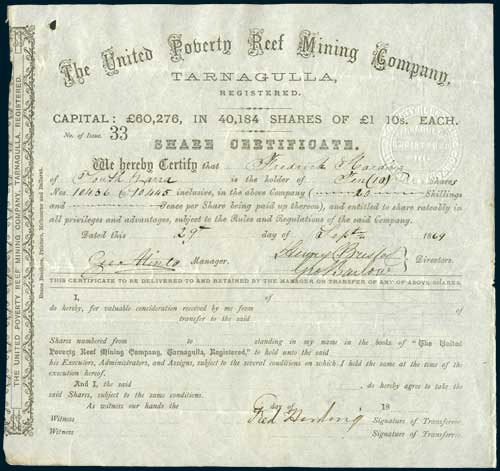 The United Poverty Reef Mining Company,
TARNAGULLA,
REGISTERED.
CAPITAL: £60,276, IN 40,184 SHARES OF £1 10s. EACH.
No. of Issue. 33
SHARE CERTIFICATE.
We hereby Certify that Frederick Harding
of South Yarra is the holder of Ten (10) Shares
Nos. 10436 to 10445 inclusive, in the above Company ( 20 Shillings
and pence per Share being paid up thereon), and entitled to share rateably in
all privileges and advantages, subject to the Rules and Regulations of the said Company.
Dated this 29th day of Septr 1864
Geo Minto Manager. Directors.
Geo Barlow
THIS CERTIFICATE TO BE DELIVERED TO AND RETAINED BY THE MANAGER ON TRANSFER OF ANY OF ABOVE SHARES.
I, of
do hereby, for valuable consideration received by me from
transfer to the said
Shares numbered from to standing in my name in the books of "The United
Poverty Reef Mining Company, Tarnagulla, Registered," to hold unto the said
his Executors, Administrators, and Assigns, subject to the several conditions on which I held the same at the time of the
execution hereof.
And I, the said do hereby agree to take the
said Shares, subject to the same conditions.
As witness our hands the day of 18
Witness Fred Harding Signature of Transferror
Witness Signature of Transferree
THE UNITED POVERTY REEF MINING COMPANY, TARNAGULLA, REGISTERED.